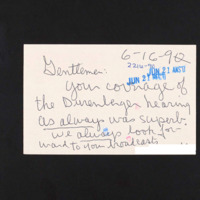 6-16-92
Gentlemen:
JUN 21 AM
JUN 21 AM
your coverage of
the Durenberger hearing
as always was superb.
we always look for-
ward to your broadcast.